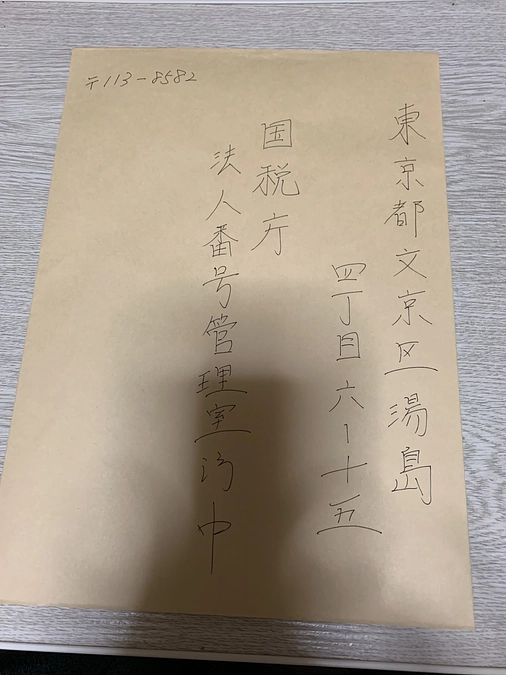 〒113-8582
東京都文京区湯島
四丁目六ー十五
国税庁
法人番号管理室御中